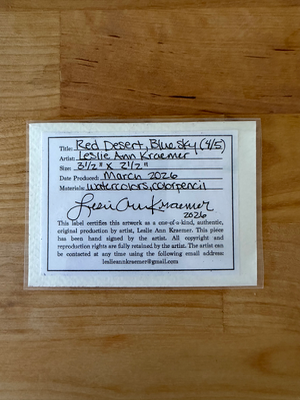 Title: Red Desert, Blue Sky (4/5)
Artist: Leslie Ann Kraemer
Size: 3 1/2" x 2 1/2"
Date Produced: March 2026
Materials: watercolors, colorpencil
Leslie Ann Kraemer
2026
This label certifies this artwork as a one-of-a-kind, authentic,
original production by artist, Leslie Ann Kraemer. This piece
has been hand signed by the artist. All copyright and
reproduction rights are fully retained by the artist. The artist
can be contacted at any time using the following email address:
leslieannkraemer@gmail.com